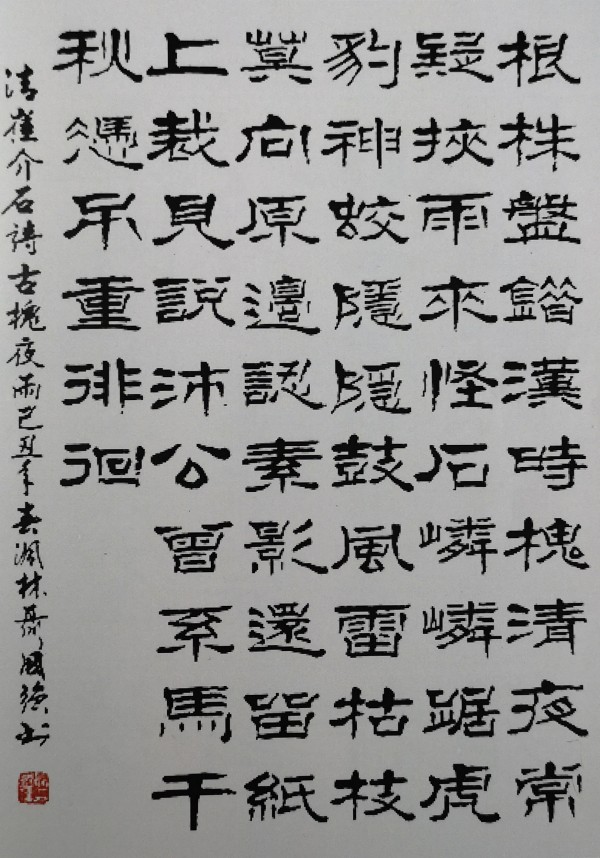 根株盤錯漢時槐清夜常
疑挾雨來怪石嶙嶙踞虎
豹神蛟隱隱鼓風雷枯枝
莫向原邊認素影還留紙
上裁見說沛公曾系馬千
秋憑吊重徘徊
清崔介石詩古槐夜雨己丑年春沨林聶國強书